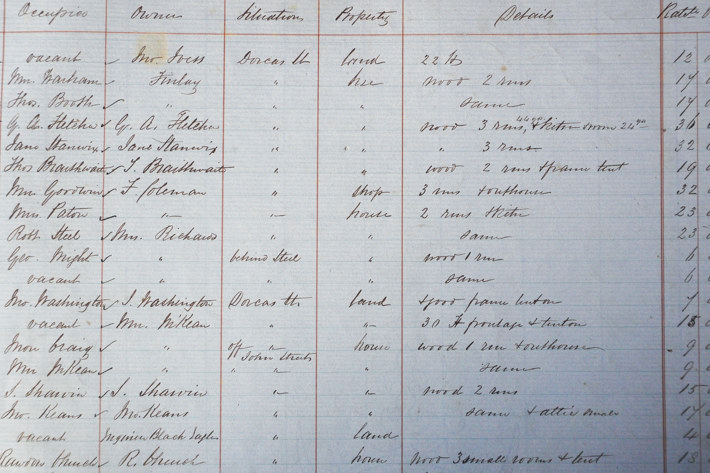 Occupier Owner Situations Property Details Rate
vacant Dorcas St land 22 ft 12
Wm. Finlay " hse wood 2 rms 14
Thos. Booth " " " same 14
G. A. Fletcher G. A. Fletcher " " wood 3 rms, 36
Jane Stanwix Jane Stanwix " " " 3 rms 32
Thos Braithwaite T. Braithwaite " " wood 2 rms & frame tent 19
Wm. Goodwin F. Coleman " shop 3 rms & outhouse 32
Paton " " house 2 rms & kitn 23
Robt Steel Mrs. Richards " " same 23
Geo. Wright " behind Steel " wood 1 rm 6
vacant " " " same 6
Jno. Washington J. Washington Dorcas St land frame 7
vacant Wm. McKean " " 30 ft frontage & 15
Craig " off " house wood 1 rm & outhouse 9
John Street
Wm McKean " " " " same 9
J. J. " " wood 2 rms 15
Jno. Keans Jno. Keans " " same & attic small 14
vacant Black Eagle " land 4
R. Church " house wood 3 small rooms & tent 13